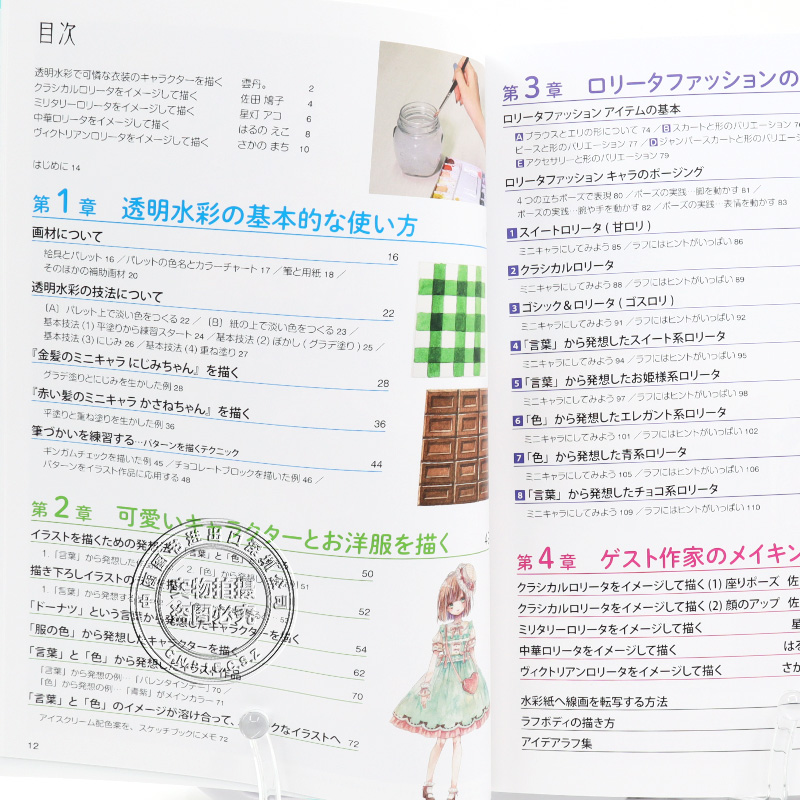 目次
透明水彩で可憐な衣装のキャラクターを描く 雲丹。 2
クラシカルロリータをイメージして描く 佐田 鳩子 4
ミリタリーロリータをイメージして描く 星灯 アコ 6
中華ロリータをイメージして描く はるの えこ 8
ヴィクトリアンロリータをイメージして描く さかの まち 10
はじめに 14
第1章 透明水彩の基本的な使い方
画材について 16
絵具とパレット 16／パレットの色名とカラーチャート 17／筆と用紙 18／
そのほかの補助画材 20
透明水彩の技法について 22
(A) パレット上で淡い色をつくる 22／(B) 紙の上で淡い色をつくる 23／
基本技法 (1) 平塗りから練習スタート 24／基本技法 (2) ぼかし ( グラデ塗り ) 25／
基本技法 (3) にじみ 26／基本技法 (4) 重ね塗り 27
『金髪のミニキャラ にじみちゃん』を描く 28
グラデ塗りとにじみを生かした例 28
『赤い髪のミニキャラ かさねちゃん』を描く 36
平塗りと重ね塗りを生かした例 36
筆づかいを練習する…パターンを描くテクニック 44
ギンガムチェックを描いた例 45／チョコレートブロックを描いた例 46／
パターンをイラスト作品に応用する 48
第2章 可愛いキャラクターとお洋服を描く
イラストを描くための発想 「言葉」と「色」 50
1.「言葉」から発想した 2.「色」から発想 51
描き下ろしイラストの 52
1.「言葉」から発想する
「ドーナツ」という言葉から発想したキャラクターを描く 54
「服の色」から発想したキャラクターを描く 62
「言葉」と「色」から発想したイラスト作品 70
「言葉」から発想の例…「バレンタインデー」70／
「色」から発想の例…「青紫」がメインカラー 71
「言葉」と「色」のイメージが溶け合って、 クなイラストへ 72
アイスクリーム配色案を、スケッチブックにメモ 72
12
第3章 ロリータファッションの
ロリータファッション アイテムの基本
A ブラウスとエリの形について 74／B スカートと形のバリエーション 76
ピースと形のバリエーション 77／D ジャンパースカートと形のバリエーション
E アクセサリーと形のバリエーション 79
ロリータファッション キャラのポージング
4つの立ちポーズで表現 80／ポーズの実践…脚を動かす 81／
ポーズの実践…腕や手を動かす 82／ポーズの実践…表情を動かす 83
1 スイートロリータ ( 甘ロリ )
ミニキャラにしてみよう 85／ラフにはヒントがいっぱい 86
2 クラシカルロリータ
ミニキャラにしてみよう 88／ラフにはヒントがいっぱい 89
3 ゴシック＆ロリータ ( ゴスロリ )
ミニキャラにしてみよう 91／ラフにはヒントがいっぱい 92
4 「言葉」から発想したスイート系ロリータ
ミニキャラにしてみよう 94／ラフにはヒントがいっぱい 95
5 「言葉」から発想したお姫様系ロリータ
ミニキャラにしてみよう 97／ラフにはヒントがいっぱい 98
6 「色」から発想したエレガント系ロリータ
ミニキャラにしてみよう 101／ラフにはヒントがいっぱい 102
7 「色」から発想した青系ロリータ
ミニキャラにしてみよう 105／ラフにはヒントがいっぱい 106
8 「言葉」から発想したチョコ系ロリータ
ミニキャラにしてみよう 109／ラフにはヒントがいっぱい 110
第4章 ゲスト作家のメイキン
クラシカルロリータをイメージして描く (1) 座りポーズ 佐
クラシカルロリータをイメージして描く (2) 顔のアップ 佐
ミリタリーロリータをイメージして描く 星
中華ロリータをイメージして描く はる
ヴィクトリアンロリータをイメージして描く さか
水彩紙へ線画を転写する方法
ラフボディの描き方
アイデアラフ集
实物拍摄
盗图必究